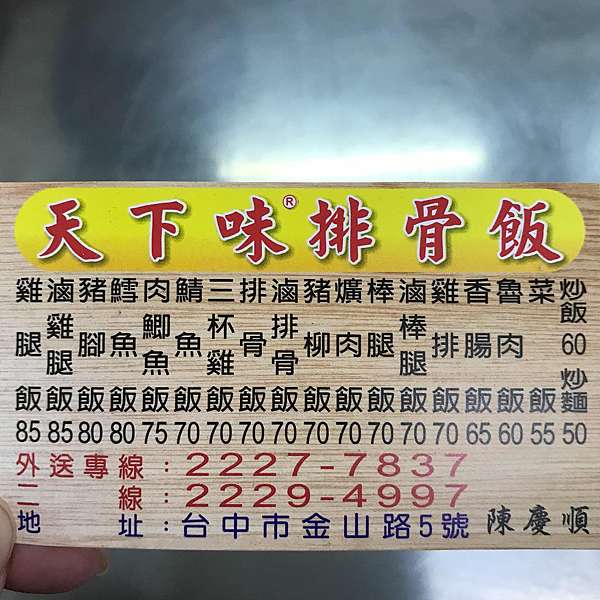 天下味®排骨飯
雞腿飯85
滷雞腿飯85
豬腳飯80
鱈魚飯80
肉鯽魚飯75
鯖魚飯70
三杯雞飯70
排骨飯70
滷排骨飯70
豬柳飯70
爌肉飯70
棒腿飯70
滷棒腿飯70
雞排飯70
香腸飯65
魯肉飯60
菜飯55
炒飯60
炒麵50
外送專線：2227-7837
二線：2229-4997
地址：台中市金山路5號 陳慶順